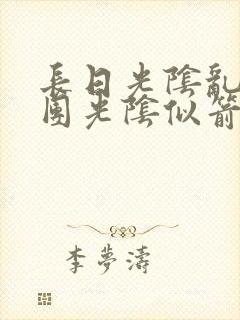 長日光陰亂
團光陰似箭
李夢濤